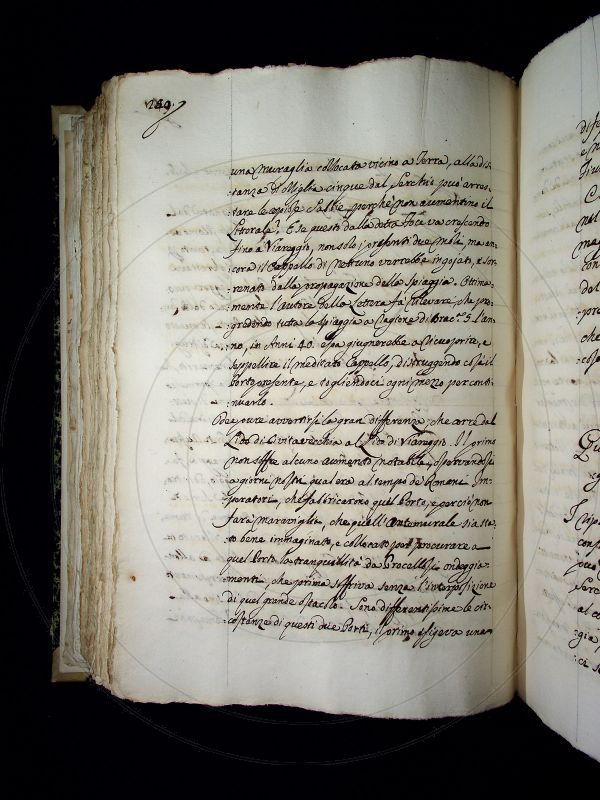 149.
una Muraglia collocata vicino a Terra, alla dis-
tanza di Miglia cinque dal Serchio può arres-
tare le copiose Sabbie, perchè non aumentino il
Littorale? E se questo dalla detta Foce va crescendo
fino a Viareggio, non solo i presenti due Moli, ma an-
cora il Cappello di Nettuno verrebbe ingojato, e sot-
terrato dalla propagazione della Spiaggia. Ottima-
mente l'Autore della Lettera fa rilevare, che pro-
gredendo tutta la Spiaggia a ragione di Brac.ª 5. l'an-
no, in Anni 40. essa giugnerebbe a ricuoprire, e
seppellire il meditato Cappello, distruggendo così il
Porto presente, e togliendoci ogni mezzo per conti-
nuarlo.
Deve pure avvertirsi la gran differenza, che corre dal
Lido di Civitavecchia al Lido di Viareggio. Il primo
non soffre alcuno aumento notabile, osservandosi
a giorni nostri qual era al tempo de Romani Im-
peratori, che fabbricarono quel Porto, e perciò non
farà maraviglia, che quell'Antemurale sia sta-
to bene immaginato, e collocato per procurare a
quel Porto la tranquillità da Procellosi ondeggia-
menti, che prima soffriva senza l'interposizione
di quel grande ostacolo. Sono differentissime le cir-
costanze di questi due Porti, il primo esigeva una